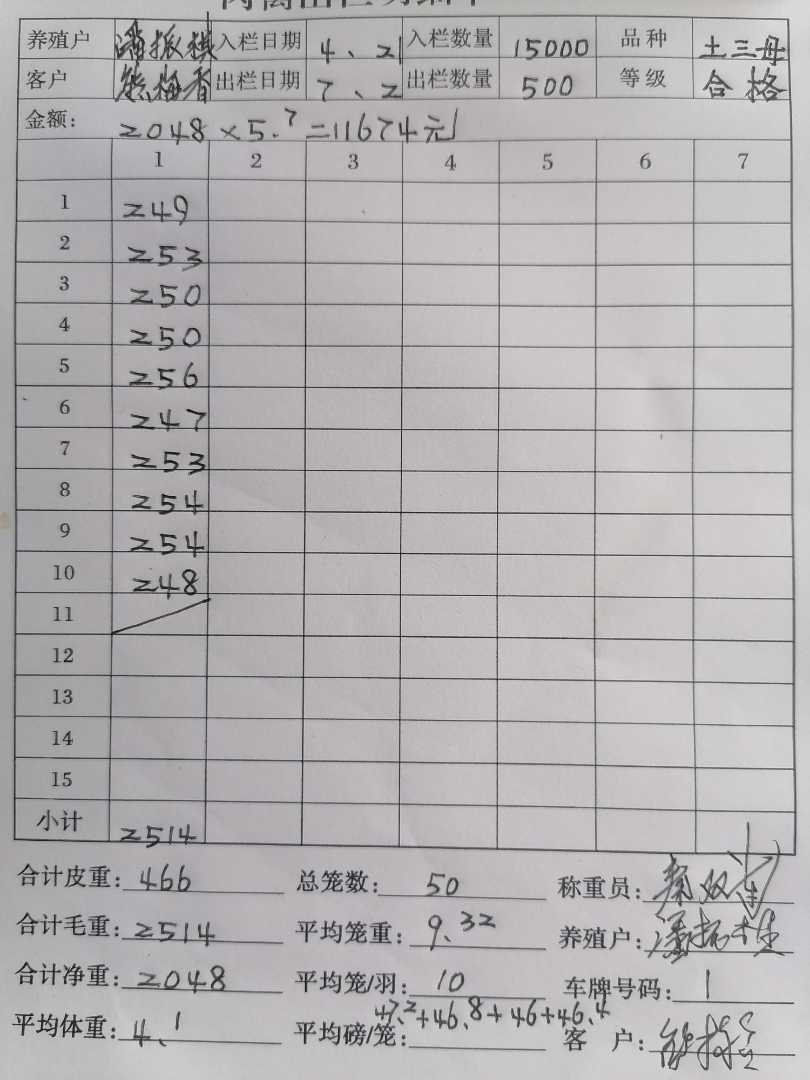 养殖户 潘振棋 入栏日期 4、21 入栏数量 15000 品种 土三母
客户 熊梅香 出栏日期 7、2 出栏数量 500 等级 合格
金额: 2048×5.7=11674元
1 2 3 4 5 6 7
1 249
2 253
3 250
4 250
5 256
6 247
7 253
8 254
9 254
10 248
11
12
13
14
15
小计 2514
合计皮重: 466 总笼数: 50 称重员:
合计毛重: 2514 平均笼重: 9.32 养殖户:
合计净重: 2048 平均笼/羽: 10 车牌号码: 1
47.2+46.8+46+46.4
平均体重: 4.1 平均磅/笼: 客户: